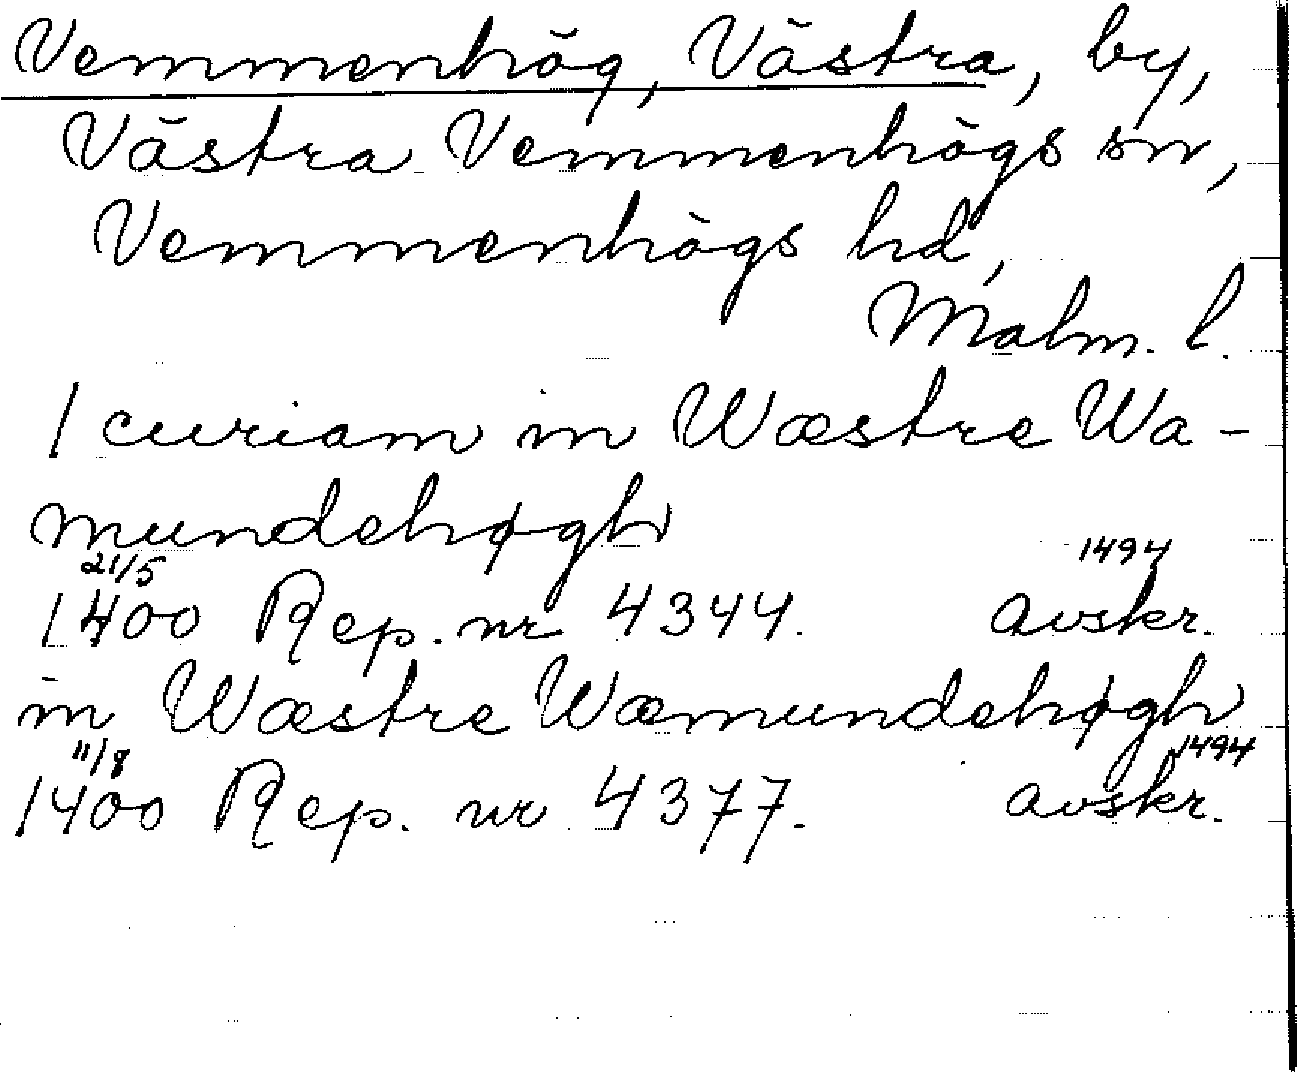 Vemmenhög, Västra, by,
Västra Vemmenhögs sn,
Vemmenhögs hd,
Malm. l.
1 curiam in Wæstre Wa-
mundehøgh
21/5 1494
1400 Rep. nr 4344. avskr.
in Wæstre Wæmundehøgh
11/8 1494
1400 Rep. nr 4377. avskr.